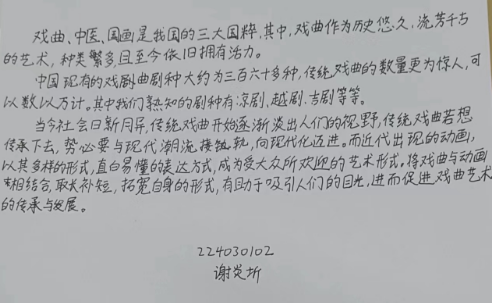 戏曲、中医、国画是我国的三大国粹,其中,戏曲作为历史悠久、流芳千古
的艺术,种类繁多,且至今依旧拥有活力。
中国现有的戏剧曲剧种大约为三百六十多种,传统戏曲的数量更为惊人,可
以数以万计。其中我们熟知的剧种有凉剧、越剧、吉剧等等。
当今社会日新月异,传统戏曲开始逐渐淡出人们的视野,传统戏曲若想
传承下去,势必要与现代潮流接轨,向现代化迈进。而近代出现的动画,
以其多样的形式,直白易懂的表达方式,成为受大众所欢迎的艺术形式,将戏曲与动画
相结合,取长补短,拓宽自身的形式,有助于吸引人们的目光,进而促进戏曲艺术
的传承与发展。
224030102
谢